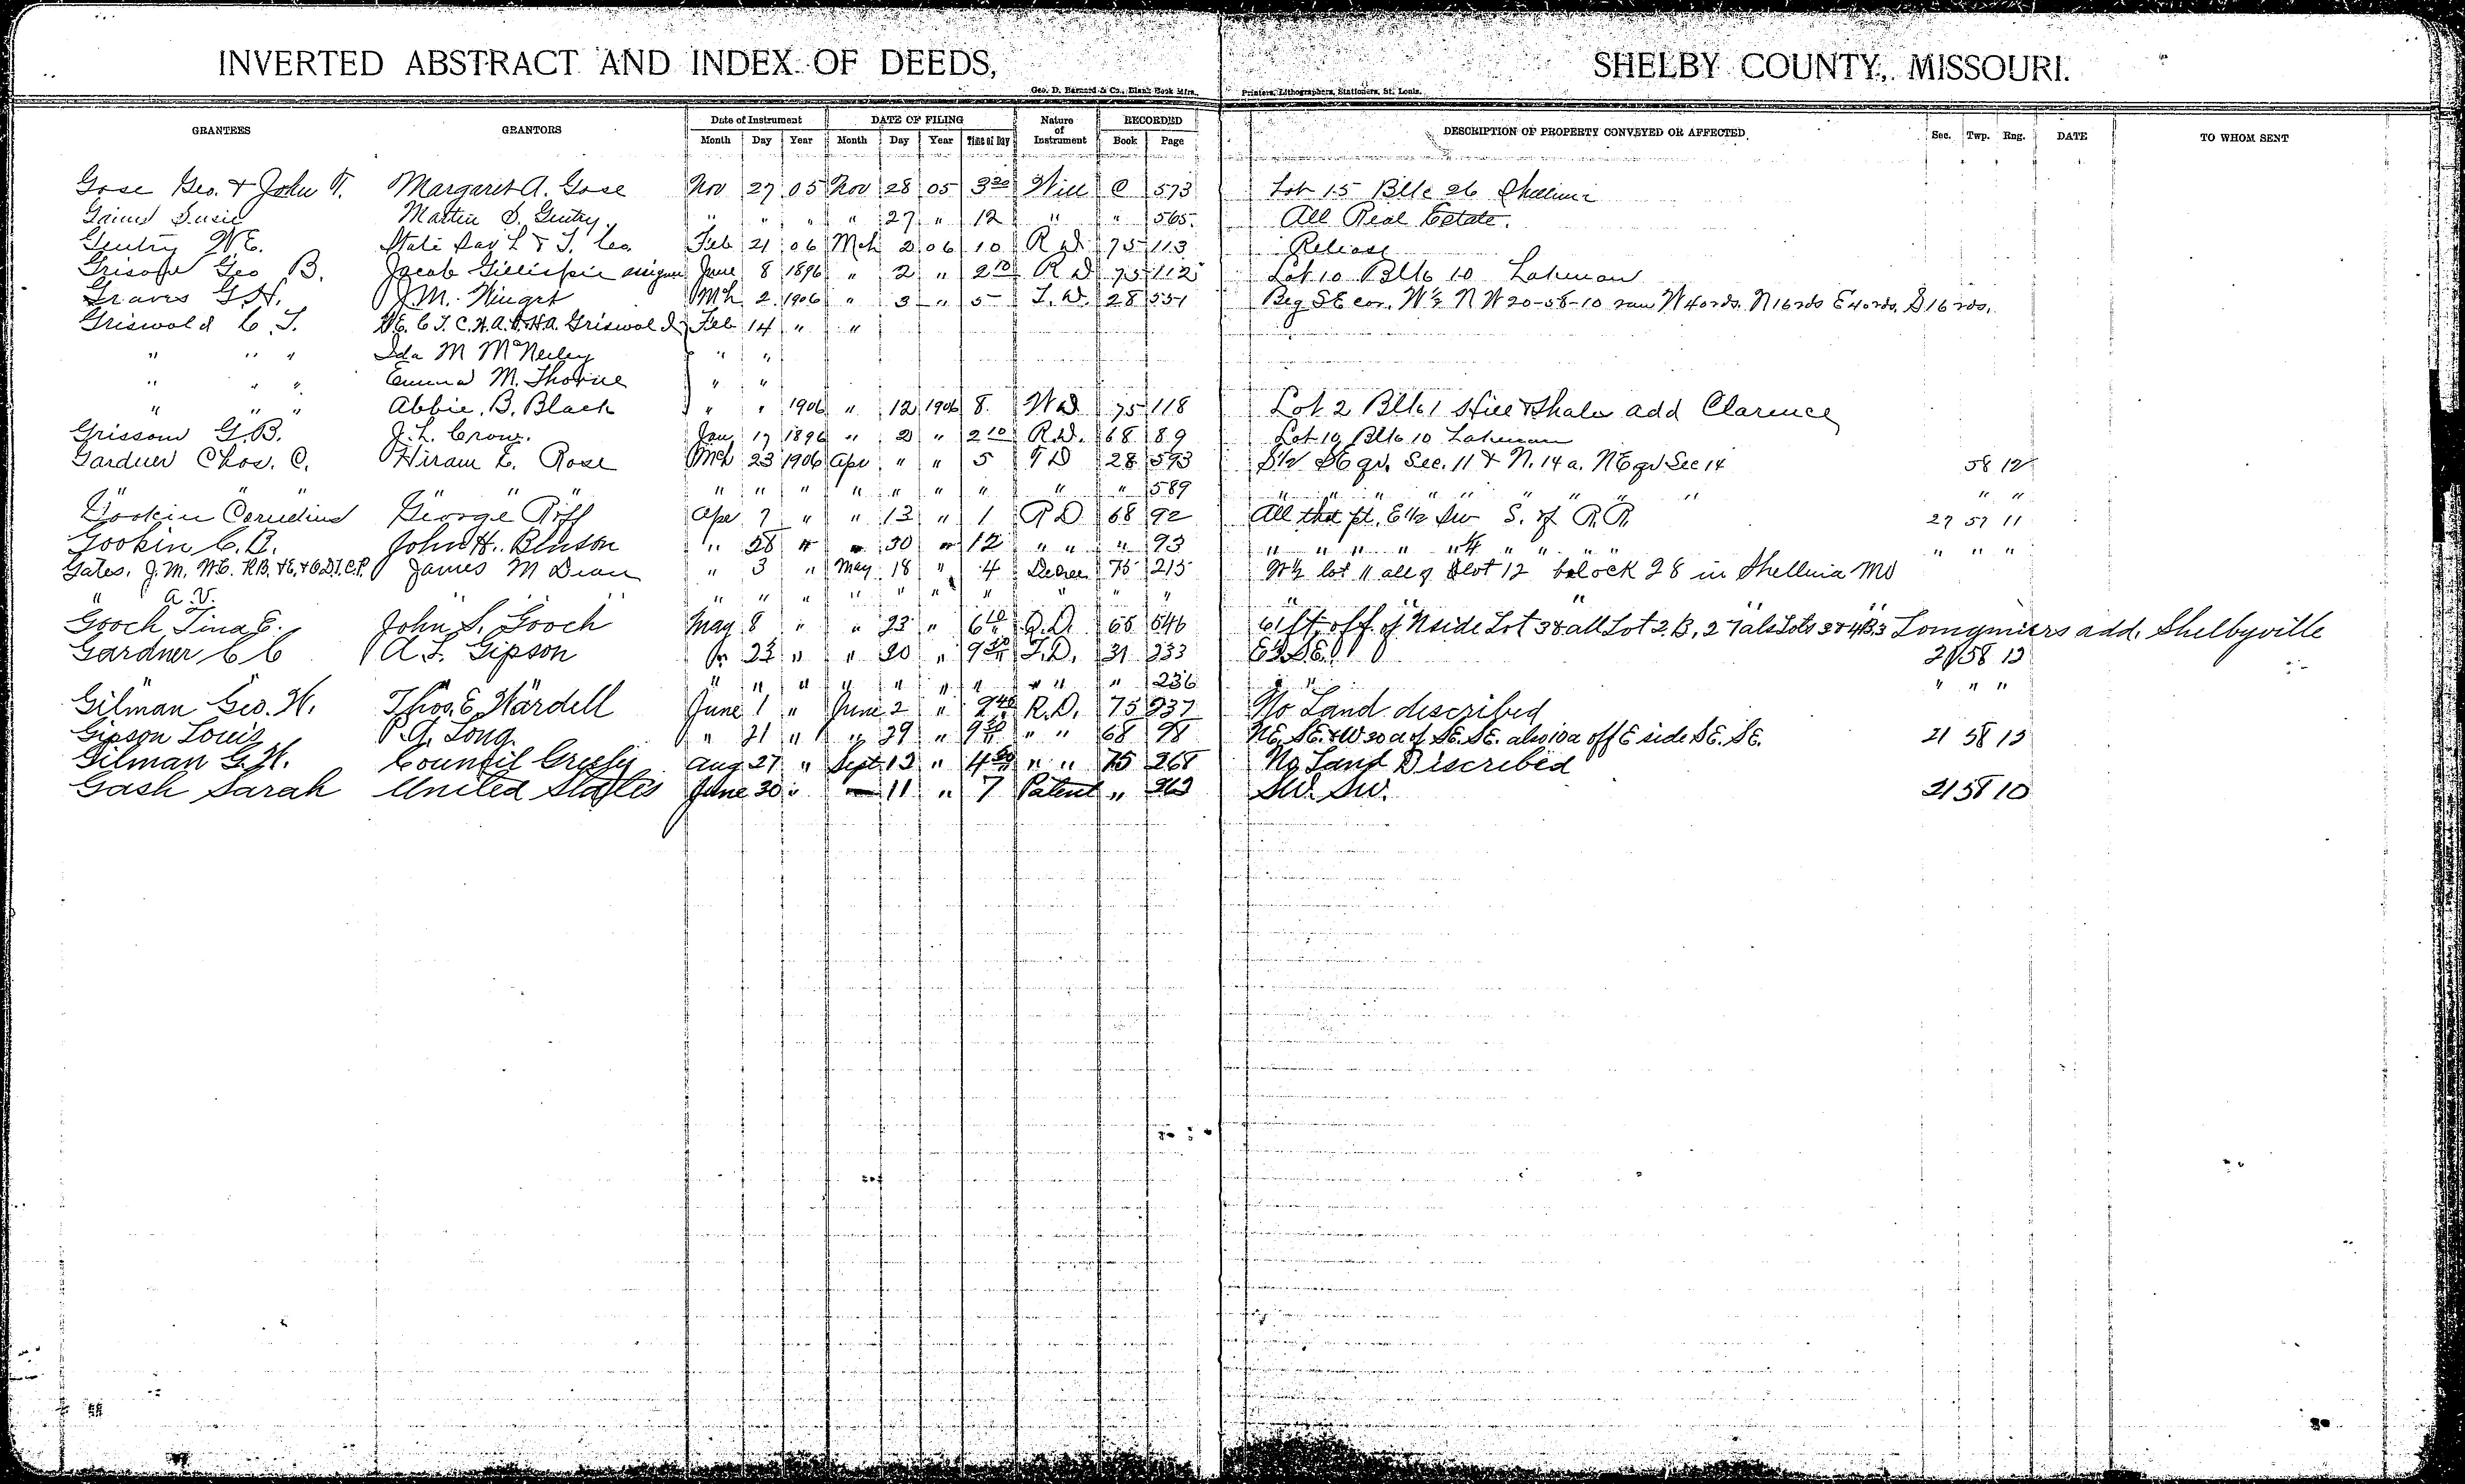 INVERTED ABSTRACT AND INDEX OF DEEDS, SHELBY COUNTY, MISSOURI.
Geo. D. Barnard & Co., Blank Book Mfrs., Printers, Lithographers, Stationers, St. Louis.
GRANTEES GRANTORS Date of Instrument DATE OF FILING Nature of Instrument RECORDED DESCRIPTION OF PROPERTY CONVEYED OR AFFECTED Sec. Twp. Rng. DATE TO WHOM SENT
Month Day Year Month Day Year Time of Day Book Page
Gose Geo. & John T. Margaret A. Gose Nov 27 05 Nov 28 05 3 30 Will C 573 Lot 15 Blk 26 Shelbina
Gaines Susie Martin S. Gentry " " " " 27 " 12 " " 565 All Real Estate.
Gentry W E. State Sav L & T. Co. Feb 21 06 Mch 2 06 10 R D 75 113 Release
Grisom Geo B. Jacob Gillispie June 8 1896 " 2 " 2 10 R D 75 112 Lot 10 Blk 10 Lakenan
Graves G.H. J.M. Winget Mch 2 1906 " 3 " 5 T. D. 28 551 Beg SE cor. W½ N W 20-58-10 run W 40 rds. N 16 rds E 40 rds. S 16 rds.
Griswold C. T. Griswold Feb 14 " "
" " " Ida M McNeiley " "
" " " Emma M. Thorne " "
" " " Abbie. B. Black " " 1906 " 12 1906 8 W D 75 118 Lot 2 Blk 1 add Clarence
Grissom G.B. J.L. Crow. Jan 17 1896 " 2 " 2 10 R.D. 68 89 Lot 10 Blk 10 Lakenan
Gardner Chas. C. Hiram E. Rose Mch 23 1906 Apr " " 5 T D 28 593 S½ SE qr. Sec. 11 & N. 14 a. NE qr Sec 14 58 12
" " " " " " " " " " " " " 589 " " " " " " " " " " "
Gookin Cornelius George Roff Apr 7 " " 13 " 1 R D 68 92 All that pt. E½ SW S. of R.R. 27 57 11
Gookin C.B. John H. Benson " 28 " " 30 " 12 " " " 93 " " " " " " " " " " "
Gates, J.M. James M Dean " 3 " May 18 " 4 Decree 75 215 W½ lot 11 all of lot 12 block 28 in Shelbina Mo
" A.V. " " " " " " " " " " " " "
Gooch Tina E. John S. Gooch May 8 " " 23 " 6 10 Q.D. 65 546 61 ft. off of N side Lot 3 & all Lot 2. B, 2 Lots 3 & 4 B.3 Longmiers add. Shelbyville
Gardner C C A. L. Gipson 23 " " 30 " 9 30 T.D. 31 233 E½ S.E. 21 58 12
" " " " " " " " " 236 " " " " "
Gilman Geo. W. Thos. E. Wardell June 1 " June 2 " 9 40 R.D. 75 237 No Land described
Gipson Louis P.G. Long. " 21 " " 29 " 9 30 " " 68 98 NE. SE. & W 30 a of SE. SE. also 10 a off E side SE. SE. 21 58 12
Gilman G.W. Council Aug 27 " Sept 12 " 4 30 " " 75 268 No Land Discribed
Gash Sarah United States June 30 " 11 " 7 Patent " 262 SW. SW. 21 58 10